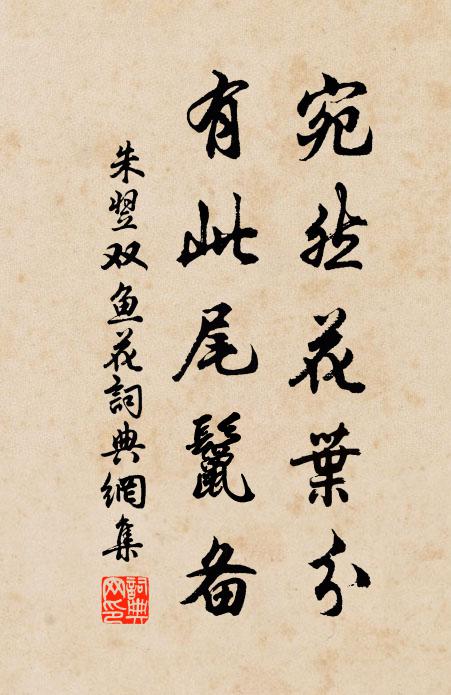 宛然花葉分
有此尾鬣备
朱翌双鱼花詞典網集
詞典网印